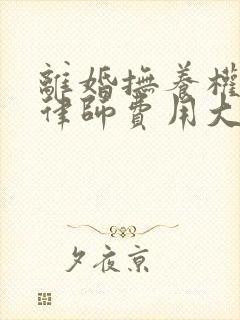 離婚撫養權
律師費用大
夕夜京